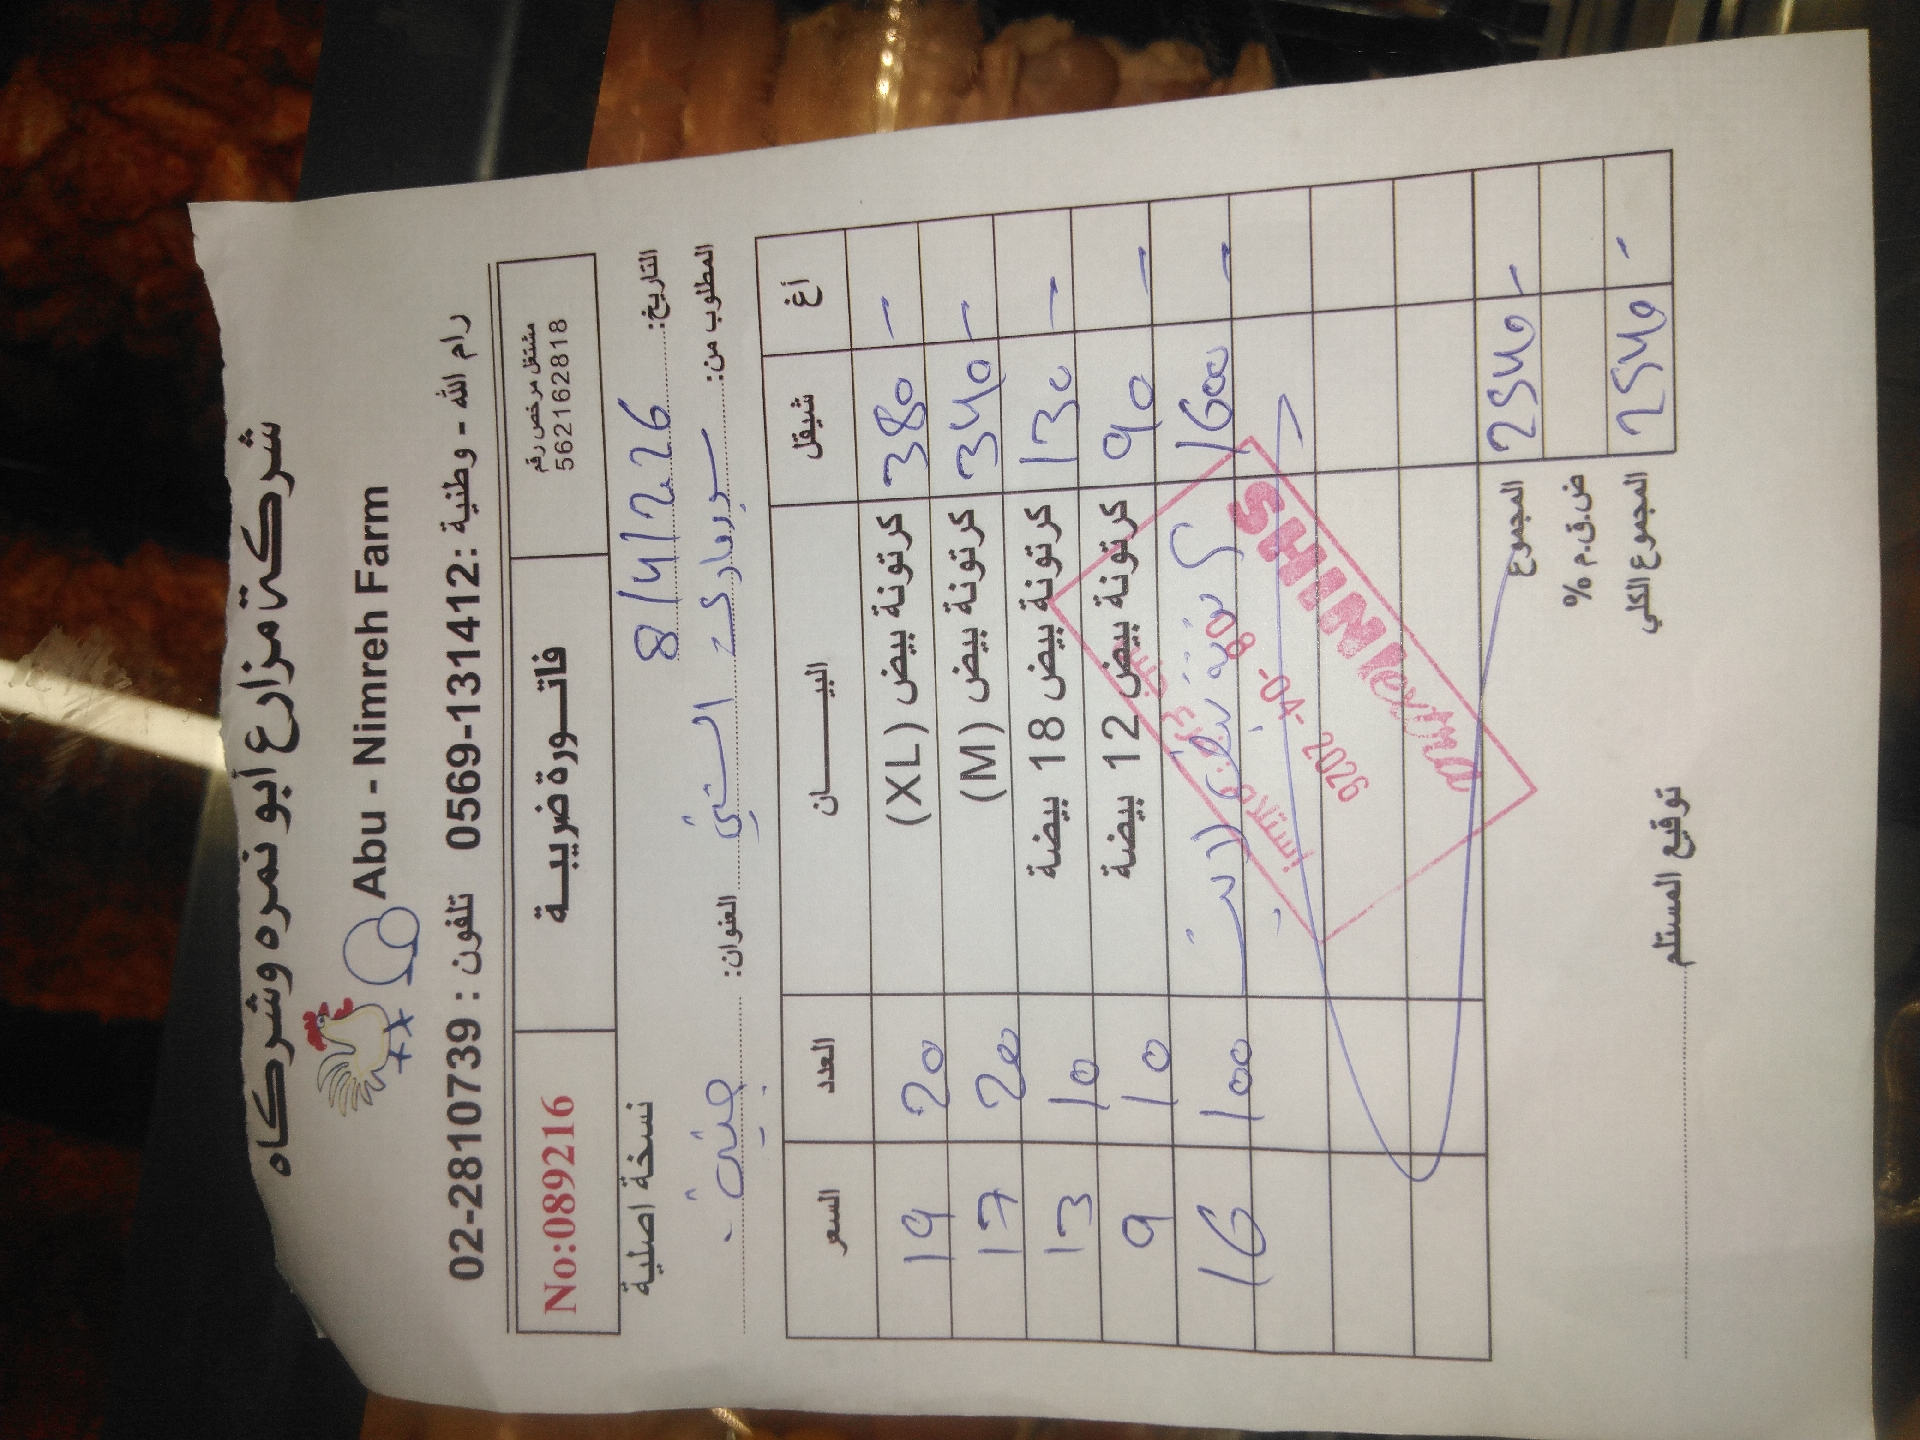 شركة مزارع أبو نمره وشركاه
Abu - Nimreh Farm
رام الله - وطنية : 0569-131412 تلفون : 02-2810739
مشتغل مرخص رقم
562162818
فاتورة ضريبية
No:089216
التاريخ: 8/4/2026
نسخة اصلية
المطلوب من: سوبرماركت الشني العنوان: جنين
أغ شيقل البيان العدد السعر
- 380 كرتونة بيض (XL) 20 19
- 340 كرتونة بيض (M) 20 17
- 130 كرتونة بيض 18 بيضة 10 13
- 90 كرتونة بيض 12 بيضة 10 9
- 1600 كرتونة بيض 100 16
SHINI extra
08 -04- 2026
إستلام
المجموع 2540 -
ض.ق.م %
المجموع الكلي 2540 -
توقيع المستلم